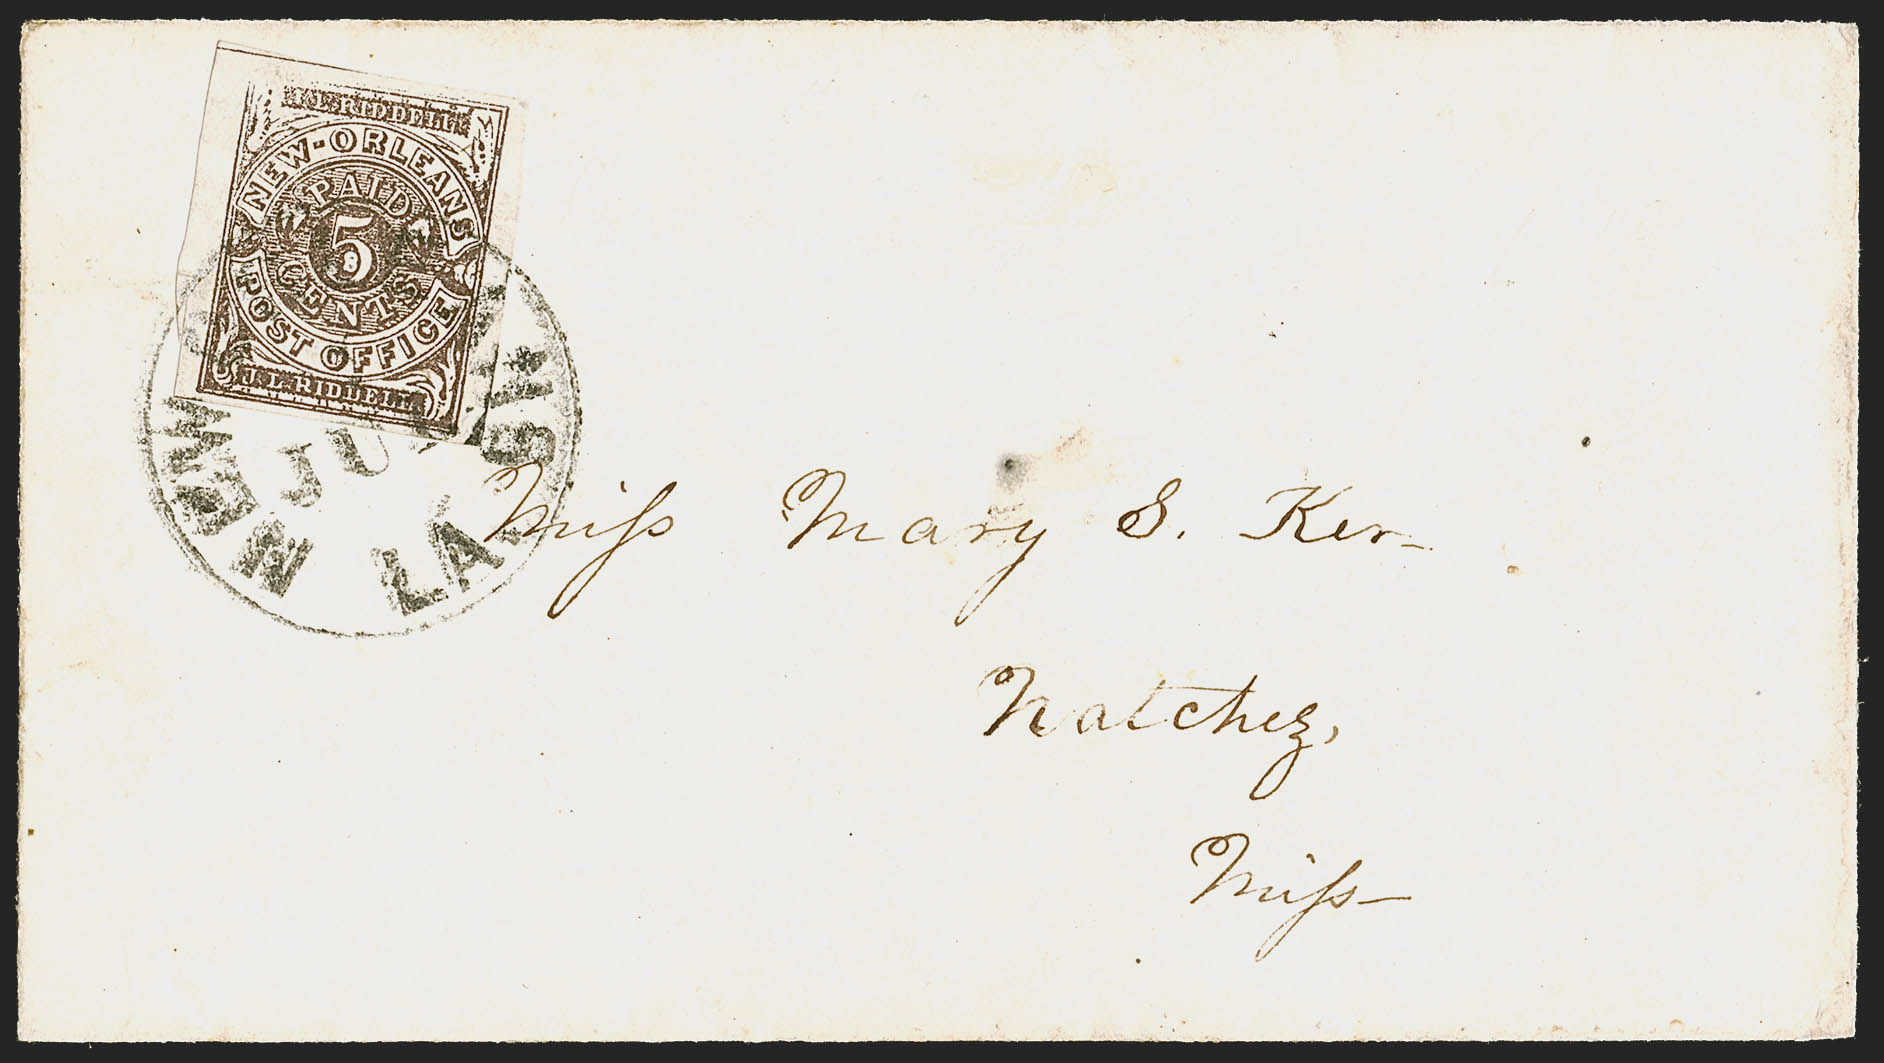 J.L.RIDDELL
NEW-ORLEANS
PAID
5
CENTS
POST OFFICE
J.L.RIDDELL
NEW
LA.
Miſs Mary S. Ker-
Natchez,
Miſs-